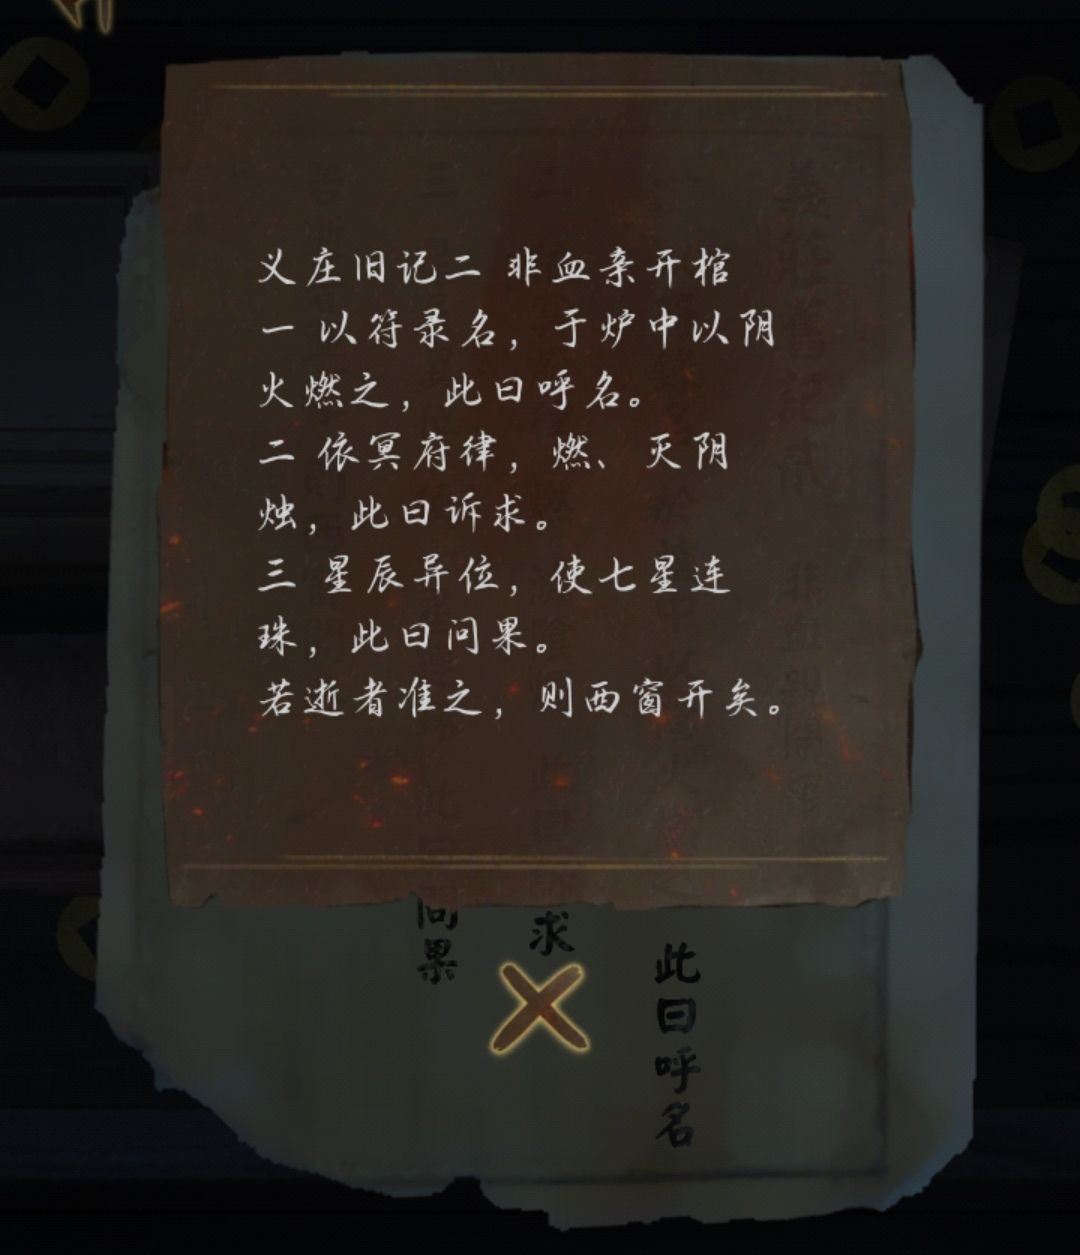 义庄旧记二 非血亲开棺
一 以符录名，于炉中以阴
火燃之，此曰呼名。
二 依冥府律，燃、灭阴
烛，此曰诉求。
三 星辰异位，使七星连
珠，此曰问果。
若逝者准之，则西窗开矣。
此曰呼名
求
问果